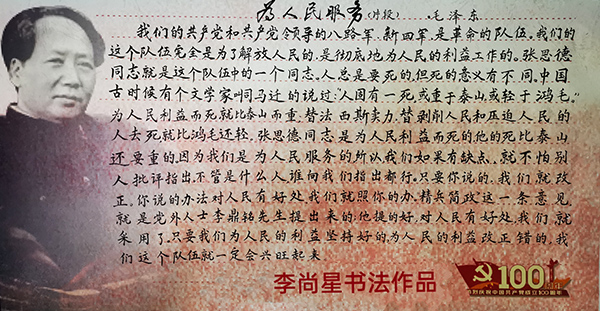 为人民服务(片段) 毛泽东
我们的共产党和共产党领导的八路军、新四军,是革命的队伍。我们的
这个队伍完全是为了解放人民的,是彻底地为人民的利益工作的。张思德
同志就是这个队伍中的一个同志。人总是要死的,但死的意义有不同。中国
古时候有个文学家叫司马迁的说过:"人固有一死,或重于泰山,或轻于鸿毛。"
为人民利益而死,就比泰山而重,替法西斯卖力,替剥削人民和压迫人民的
人去死,就比鸿毛还轻。张思德同志是为人民利益而死的,他的死比泰山
还要重的。因为我们是为人民服务的,所以我们如果有缺点,就不怕别
人批评指出,不管是什么人,谁向我们指出都行,只要你说的,我们就改
正。你说的办法对人民有好处,我们就照你的办。精兵简政这一条意见
就是党外人士李鼎铭先生提出来的:他提的好,对人民有好处,我们就
采用了。只要我们为人民的利益坚持好的,为人民的利益改正错的,我
们这个队伍就一定会兴旺起来
李尚星书法作品
100周年
热烈庆祝中国共产党成立100周年